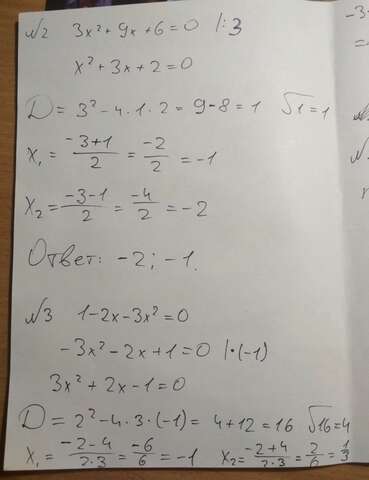 №2 3x² + 9x + 6 = 0 | : 3
x² + 3x + 2 = 0
D = 3² - 4 · 1 · 2 = 9 - 8 = 1 √1 = 1
x₁ = (-3+1)/2 = -2/2 = -1
x₂ = (-3-1)/2 = -4/2 = -2
Ответ: -2; -1.
№3 1 - 2x - 3x² = 0
-3x² - 2x + 1 = 0 | · (-1)
3x² + 2x - 1 = 0
D = 2² - 4 · 3 · (-1) = 4 + 12 = 16 √16 = 4
x₁ = (-2-4)/(2·3) = -6/6 = -1 x₂ = (-2+4)/(2·3) = 2/6 = 1/3